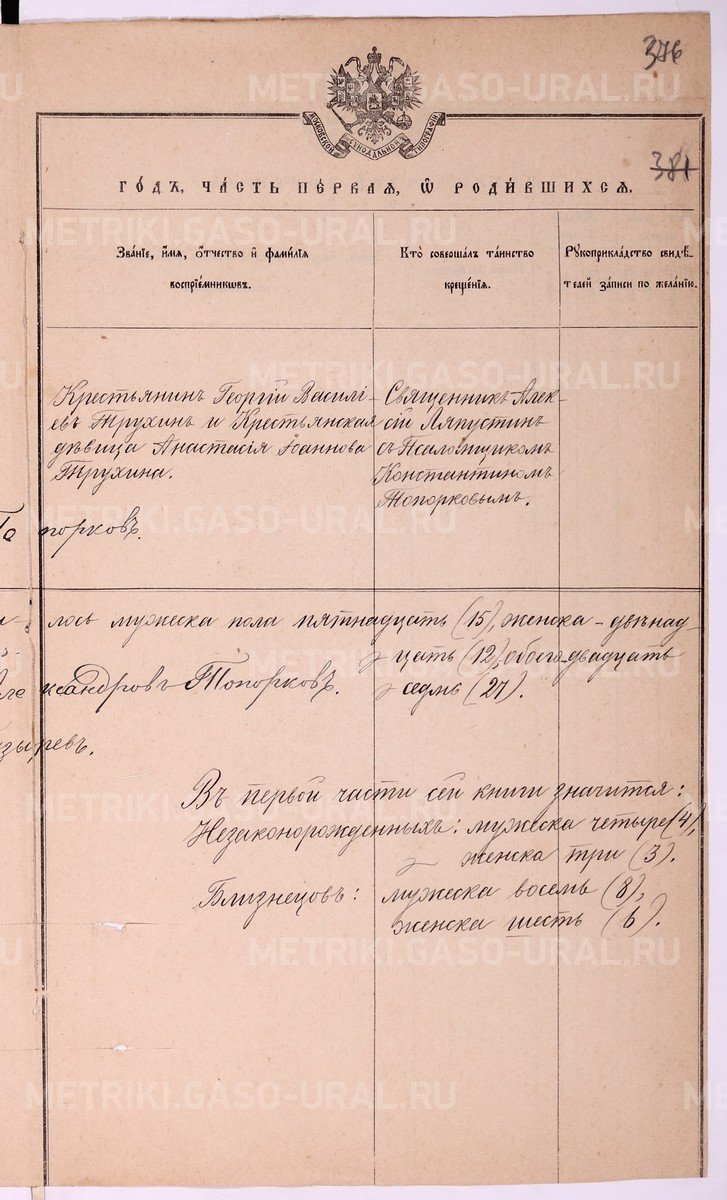 376
МОСКОВСКОЙ СѴНОДАЛЬНОЙ ТИПОГРАФІИ
381
ГО́ДЪ, ЧА́СТЬ ПЕ́РВАЯ, Ѡ҆ РОДИ́ВШИХСЯ.
Зва́нїе, и҆́мѧ, ѻ҆́тчество и҆ фами́лїѧ
воспрїе́мникѡвъ.
Кто̀ соверша́лъ та́инство
креще́нїѧ.
Рꙋкоприкла́дство свидѣ́-
телей за́писи по жела́нїю.
Крестьянинъ Георгій Василі-
евъ Трухинъ и Крестьянская
дѣвица Анастасія Іоаннова
Трухина.
Священникъ Алек-
сій Ляпустинъ
съ Псаломщикомъ
Константиномъ
Топорковымъ.
То порковъ.
лось мужеска пола пятнадцать (15), женска - двѣнад-
цать (12), обоего двадцать
седмь (27).
ле ксандровъ Топорковъ.
зыревъ.
Въ первой части сей книги значится:
Незаконорожденныхъ: мужеска четыре (4),
женска три (3).
Близнецовъ: мужеска восемь (8),
женска шесть (6).
METRIKI.GASO-URAL.RU